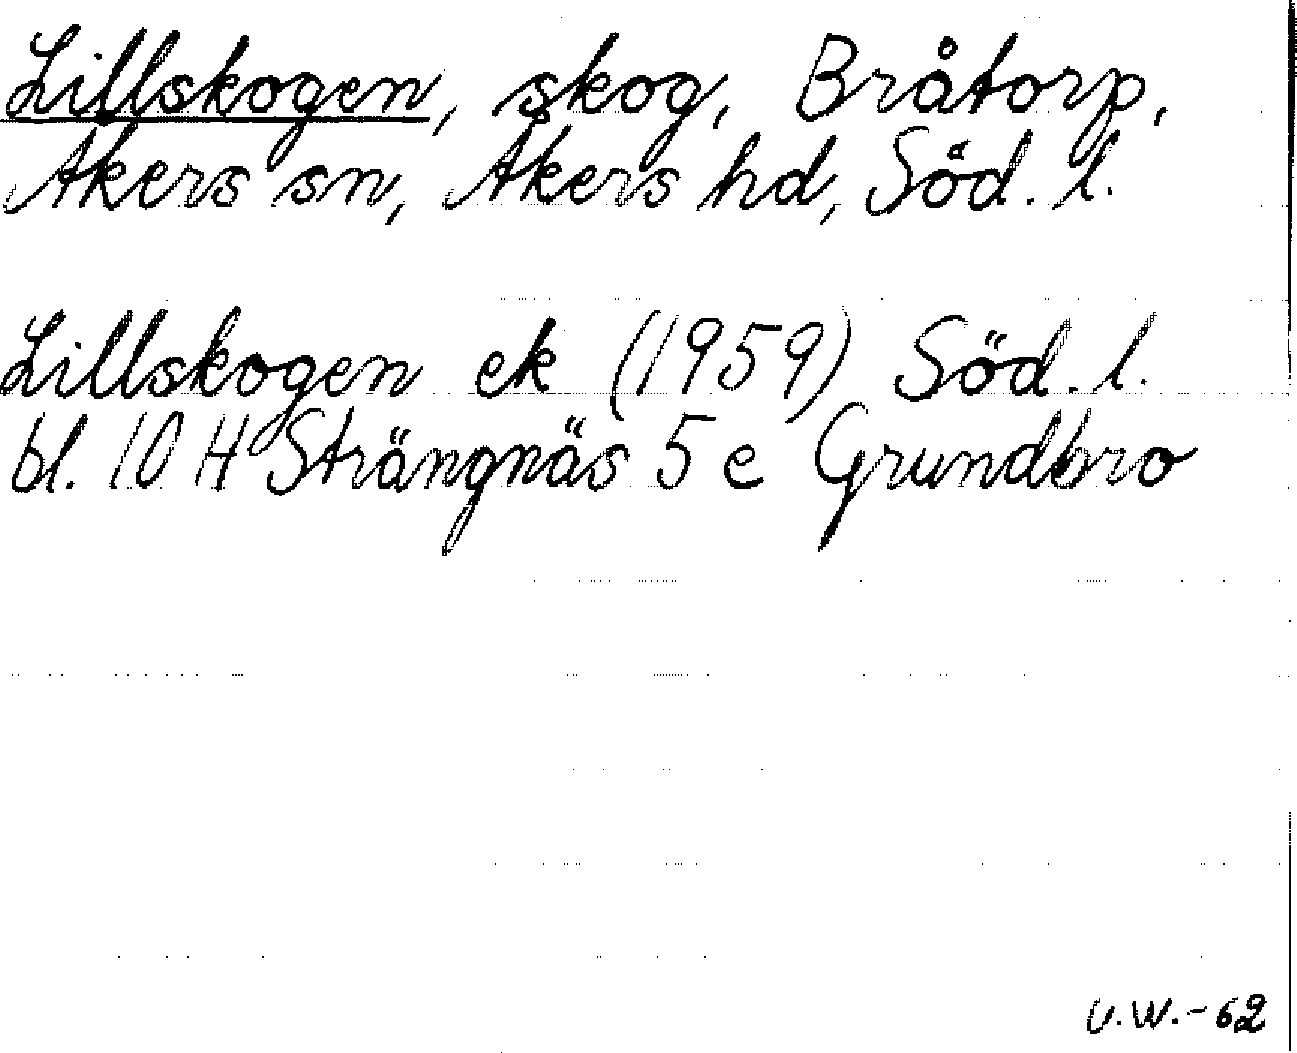 Lillskogen, skog, Bråtorp,
Åkers sn, Åkers hd, Söd. l.
Lillskogen ek (1959) Söd. l.
bl. 10 H Strängnäs 5 e Grundbro
U.W.-62